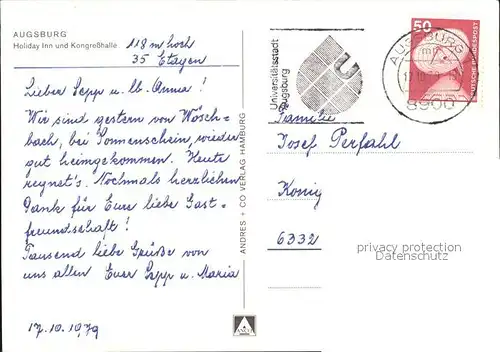 AUGSBURG
Holiday Inn und Kongreßhalle
118 m hoch
35 Etagen
Lieber Sepp u. lb. Anna!
Wir sind gestern von Wösch=
bach, bei Sonnenschein, wieder
gut heimgekommen. Heute
regnet's. Nochmals herzlichen
Dank für Eure liebe Gast=
freundschaft!
Tausend liebe Grüße von
uns allen Euer Sepp u. Maria
17.10.1979
ANDRES + CO VERLAG HAMBURG
ANCO
Universitätsstadt
Augsburg
AUGSBURG
8900
50
DEUTSCHE BUNDESPOST
Familie
Josef Perfahl
König
6332
privacy protection
Datenschutz